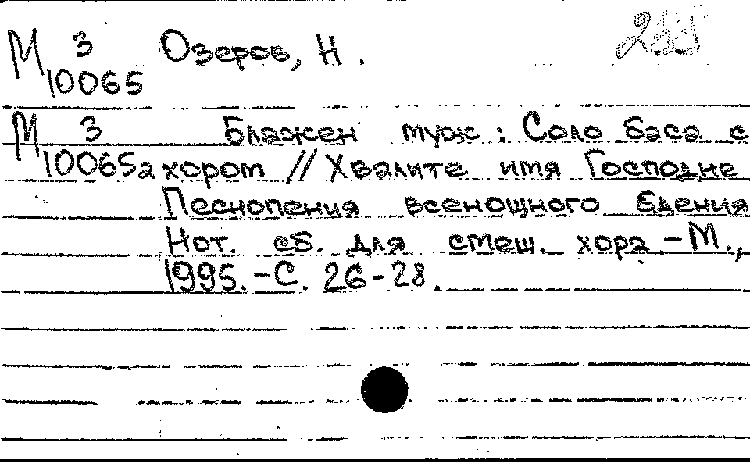 М 3 Озеров, Н. 255
10065
М 3 Блажен муж: Соло баса с
10065а хором // Хвалите имя Господне
Песнопения всенощного бдения
Нот. сб. для смеш. хора - М.,
1995. - С. 26-28.